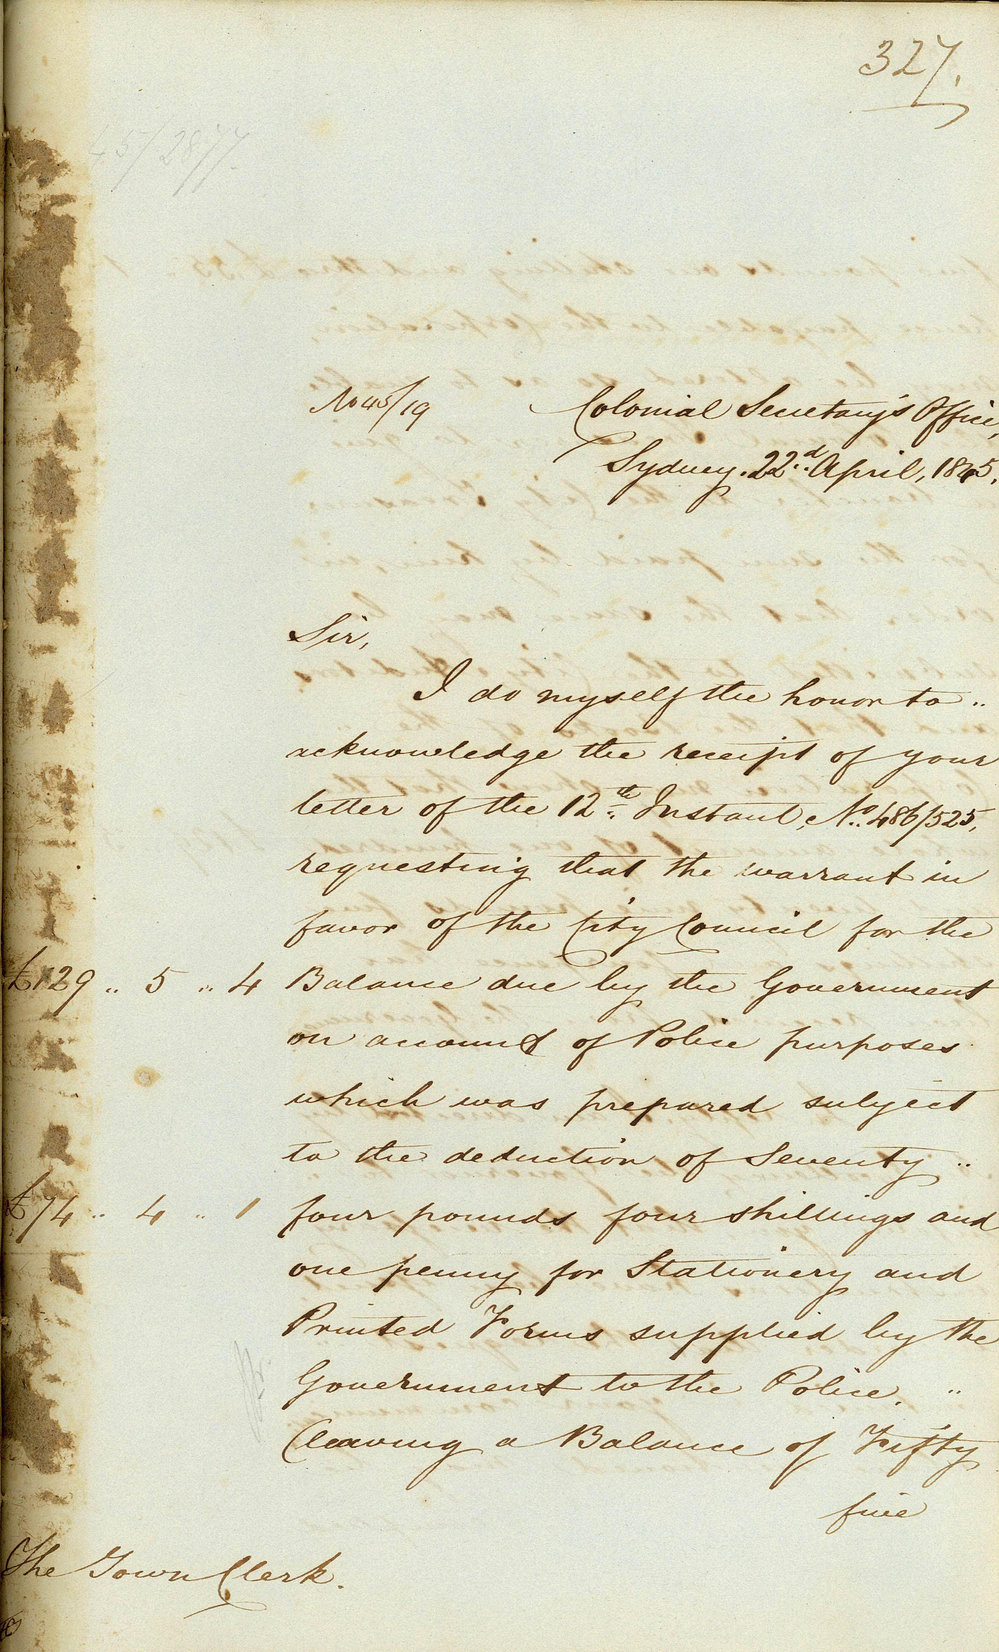 327.
45/2877
No 45/19
Colonial Secretary's Office,
Sydney. 22d April, 1845.
Sir,
I do myself the honor to ..
acknowledge the receipt of your
letter of the 12th Instant, No. 486/525,
requesting that the warrant in
favor of the City Council for the
£129 .. 5 .. 4 Balance due by the Government
on account of Police purposes
which was prepared subject
to the deduction of Seventy ..
£74 .. 4 .. 1 four pounds four shillings and
one penny for Stationery and
Printed Forms supplied by the
Government to the Police, ..
(leaving a Balance of Fifty
five
The Town Clerk.